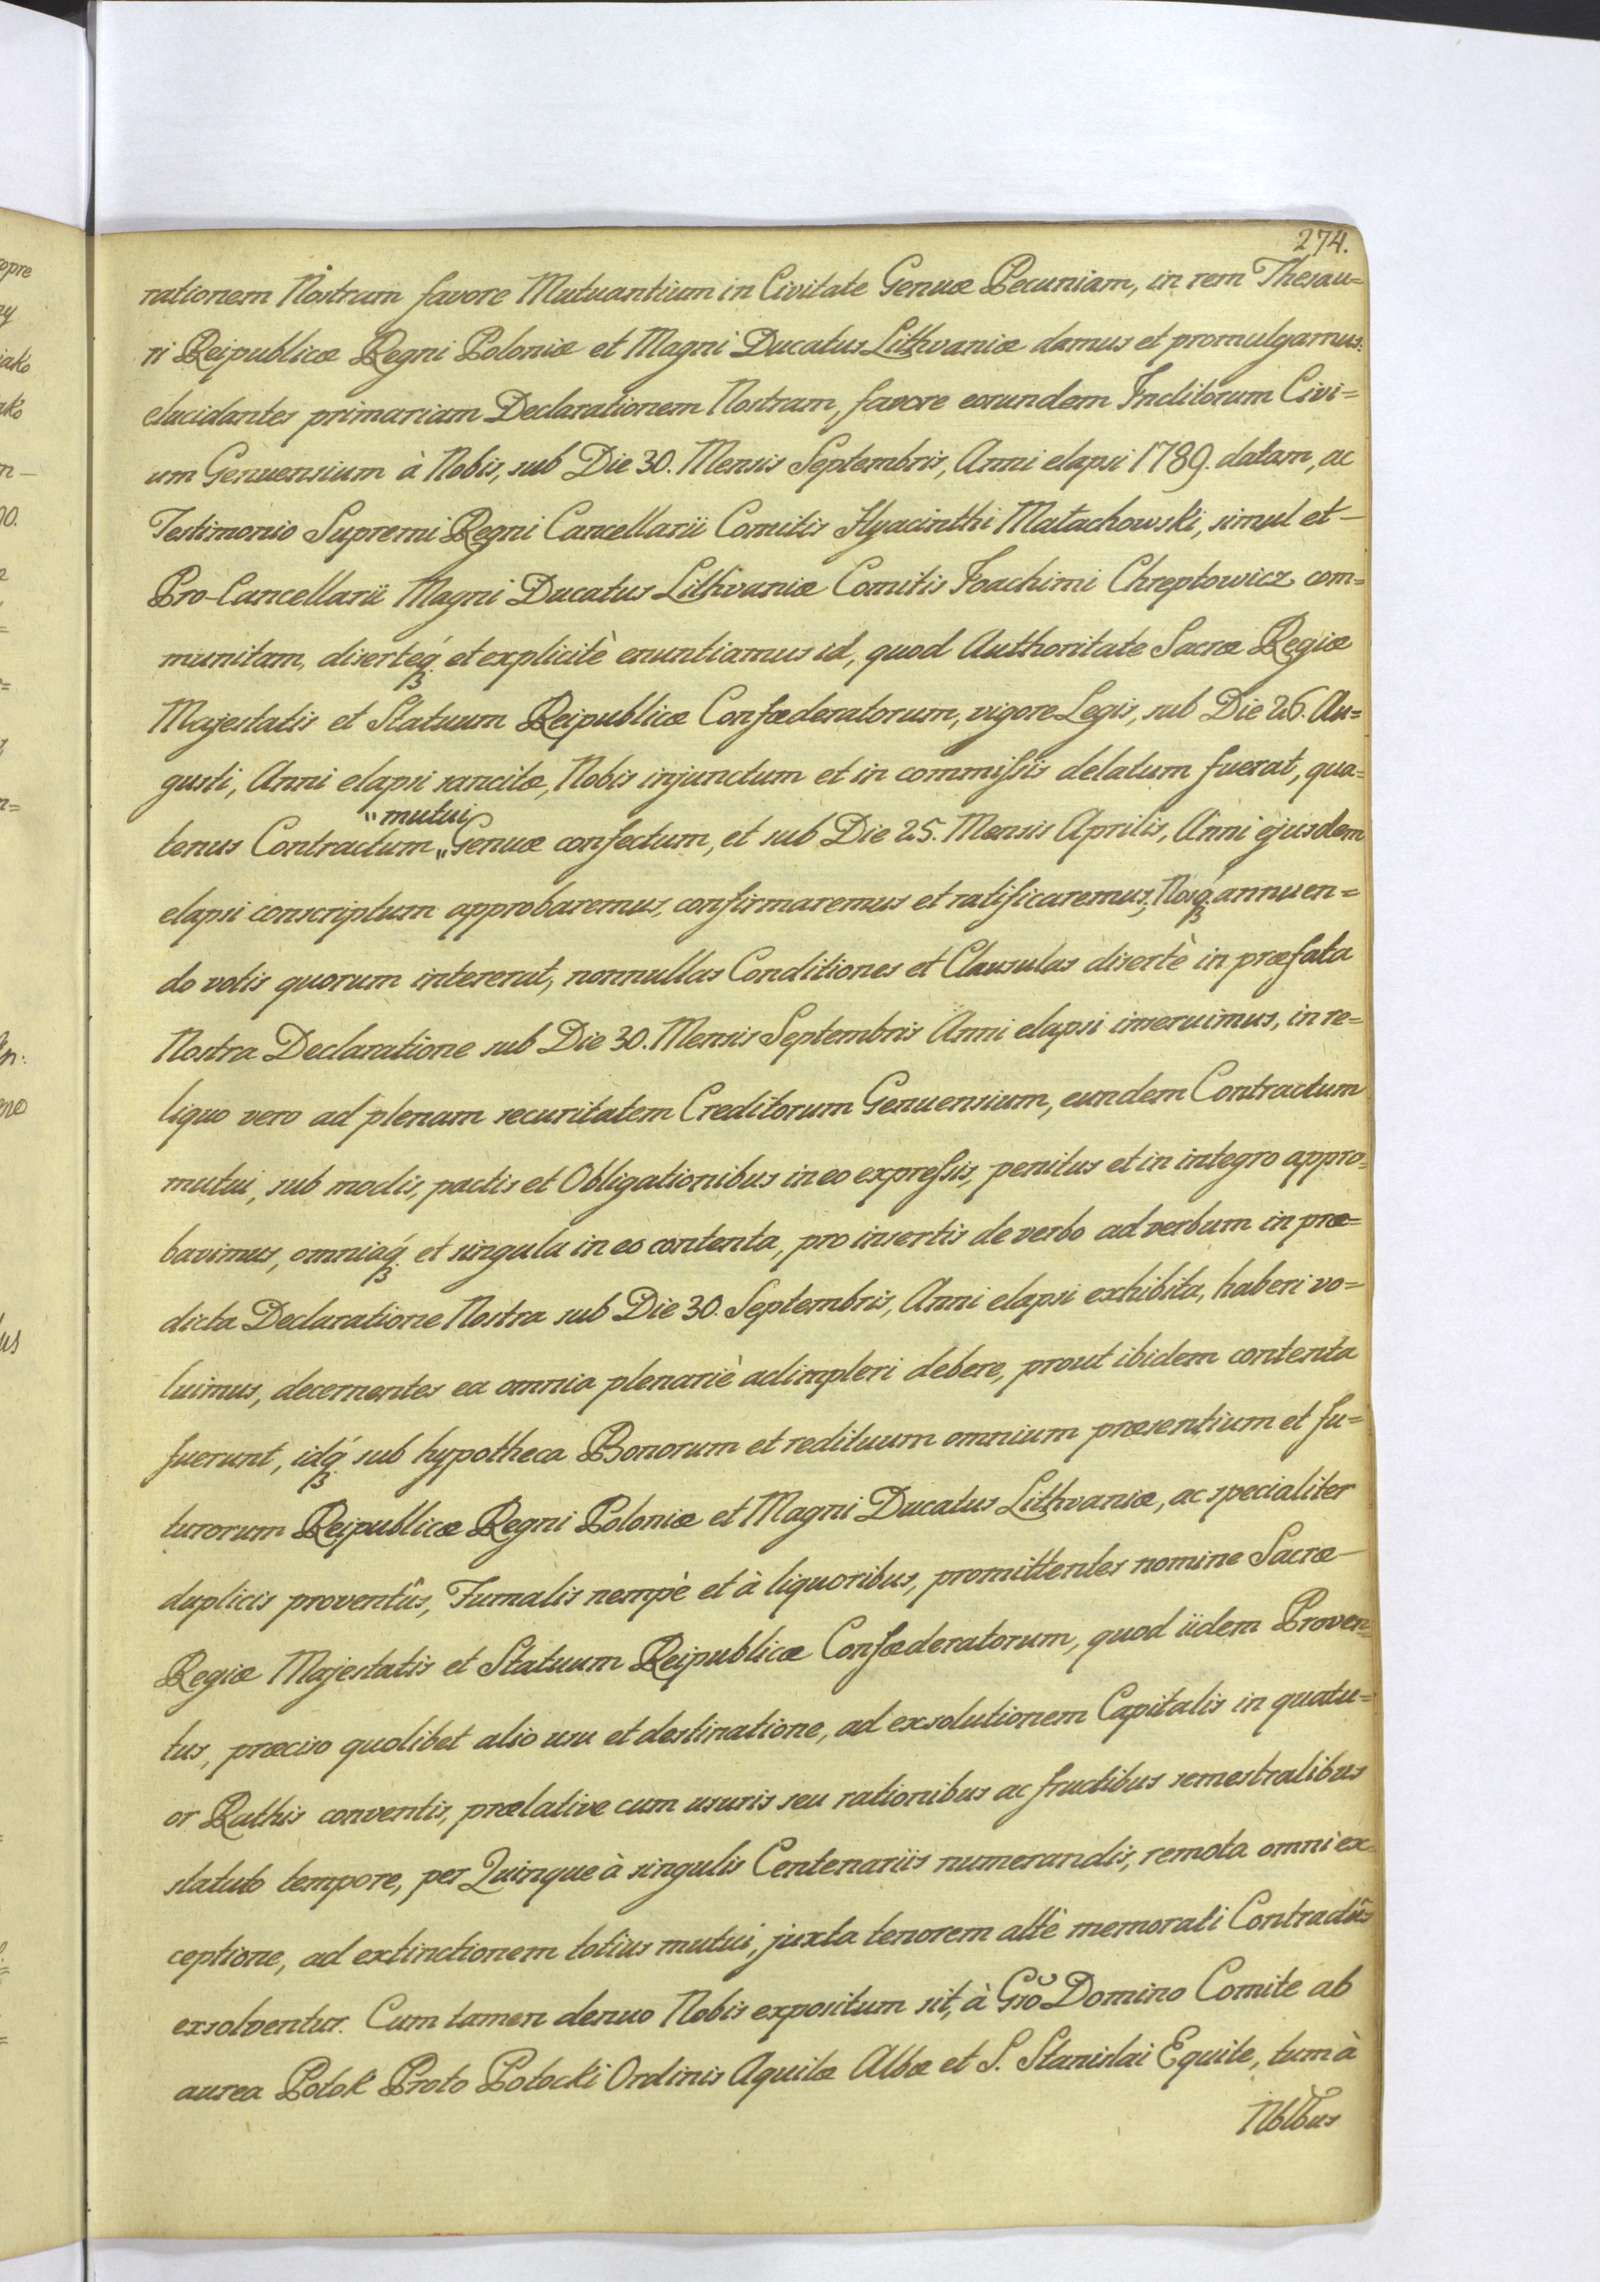 274.
rationem Nostram favore Mutuantium in Civitate Genuæ Pecuniam, in rem Thesau=
ri Reipublicæ Regni Poloniæ et Magni Ducatus Lithvaniæ damus et promulgamus:
elucidantes primariam Declarationem Nostram, favore eorundem Inclitorum Civi=
um Genuensium à Nobis, sub Die 30. Mensis Septembris, Anni elapsi 1789. datam, ac
Testimonio Supremi Regni Cancellarii Comitis Hyacinthi Małachowski, simul et —
Pro-Cancellarii Magni Ducatus Lithvaniæ Comitis Joachimi Chreptowicz com=
munitam, disertéqꝫ et explicitè enuntiamus id, quod Authoritate Sacræ Regiæ
Majestatis et Statuum Reipublicæ Confœderatorum, vigore Legis, sub Die 26. Au=
gusti, Anni elapsi sancitæ, Nobis injunctum et in commissis delatum fuerat, qua=
"mutui
tenus Contractum „Genuæ confectum, et sub Die 25. Mensis Aprilis, Anni ejusdem
elapsi conscriptum approbaremus, confirmaremus et ratificaremus; Nosqꝫ annuen=
do votis quorum intererat, nonnullas Conditiones et Clausulas disertè in præfata
Nostra Declaratione sub Die 30. Mensis Septembris Anni elapsi inseruimus, in re=
liquo vero ad plenam securitatem Creditorum Genuensium, eundem Contractum
mutui, sub modis, pactis et Obligationibus in eo expressis, penitus et in integro appro=
bavimus, omniáqꝫ et singula in eo contenta, pro insertis de verbo ad verbum in præ=
dicta Declaratione Nostra sub Die 30. Septembris, Anni elapsi exhibita, haberi vo=
luimus, decernentes ea omnia plenariè adimpleri debere, prout ibidem contenta
fuerunt, idqꝫ sub hypotheca Bonorum et redituum omnium præsentium et fu=
turorum Reipublicæ Regni Poloniæ et Magni Ducatus Lithvaniæ, ac specialiter
duplicis proventûs, Fumalis nempè et à liquoribus, promittentes nomine Sacræ —
Regiæ Majestatis et Statuum Reipublicæ Confœderatorum, quod iidem Proven=
tus, præciso quolibet alio usu et destinatione, ad exsolutionem Capitalis in quatu=
or Rathis conventis, prælative cum usuris seu rationibus ac fructibus semestralibus
statuto tempore, per Quinque à singulis Centenariis numerandis, remota omni ex=
ceptione, ad extinctionem totius mutui, juxta tenorem altè memorati Contractûs
exsolventur. Cum tamen denuo Nobis expositum sit, à Gso Domino Comite ab
aurea Potok Proto Potocki Ordinis Aquilæ Albæ et S. Stanislai Equite, tum à
Nblbus